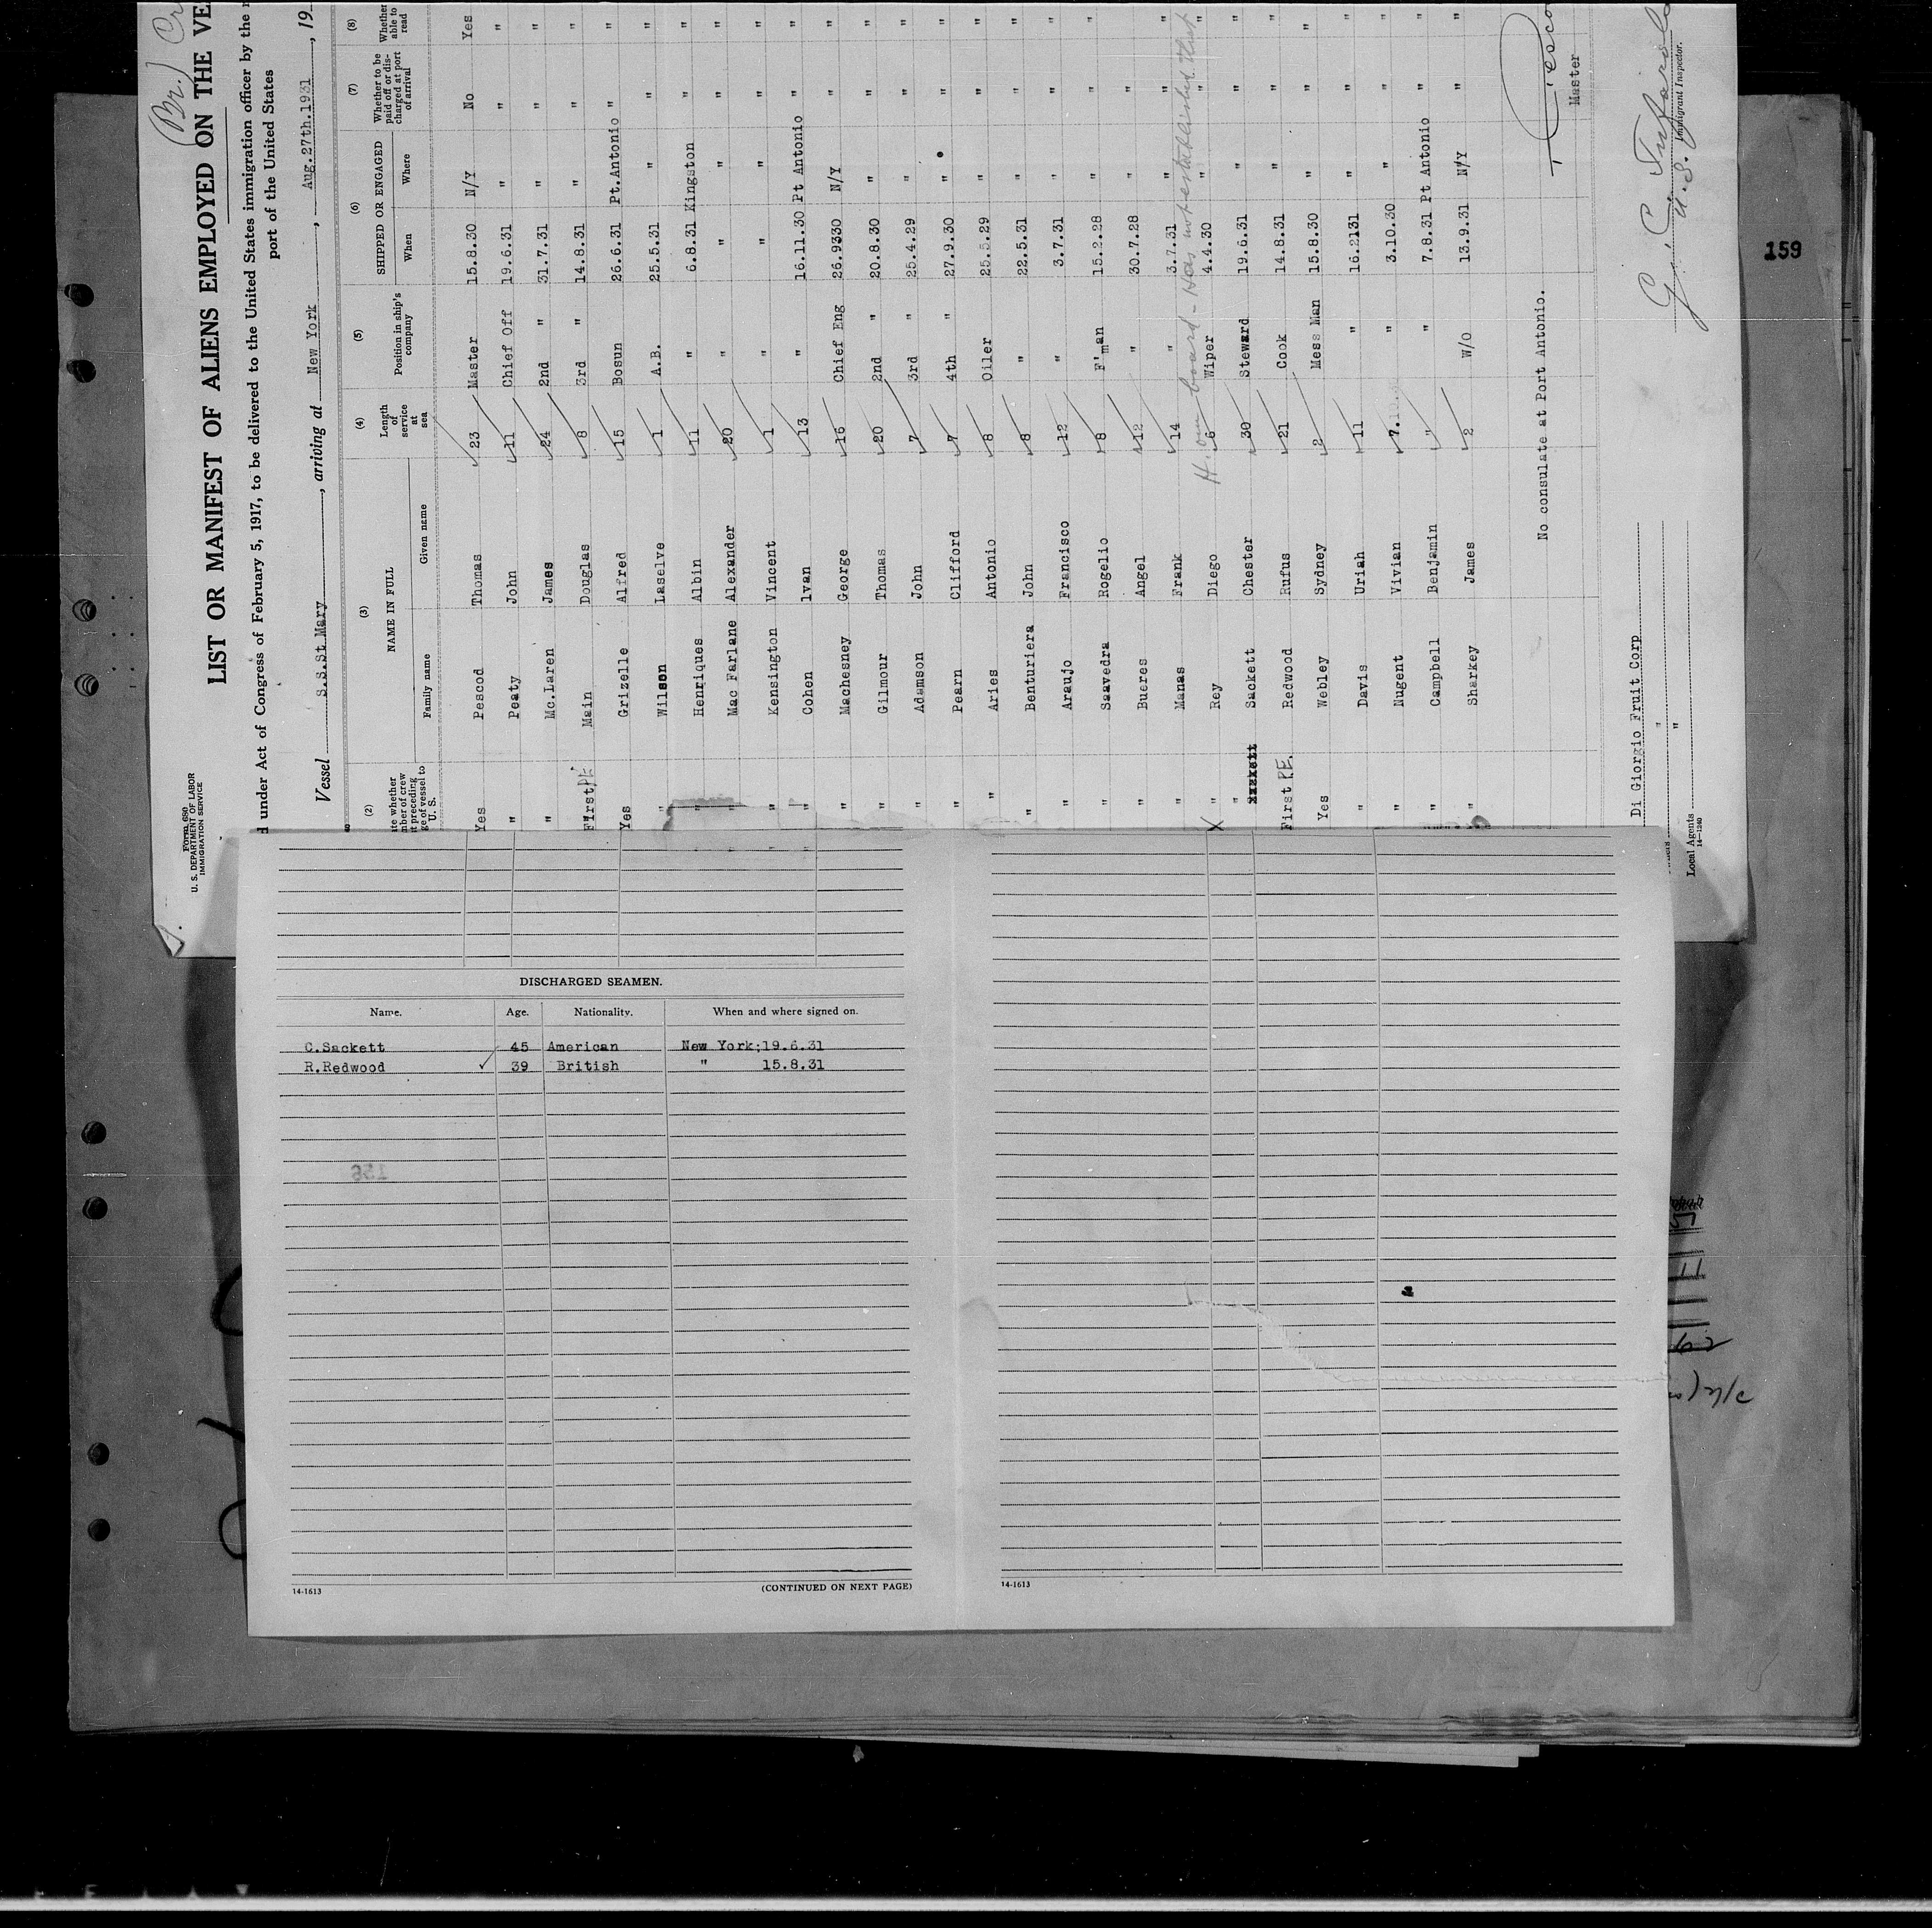 (Br.)
Form 680
U. S. DEPARTMENT OF LABOR
IMMIGRATION SERVICE
LIST OR MANIFEST OF ALIENS EMPLOYED ON THE VE
d under Act of Congress of February 5, 1917, to be delivered to the United States immigration officer by the
port of the United States
Vessel S.S.St.Mary, arriving at New York, Aug.27th.1931, 19
(2) (3) (4) (5) (6) (7) (8)
NAME IN FULL
Family name Given name
Length of service at sea
Position in ship's company
SHIPPED OR ENGAGED
When Where
Whether to be paid off or discharged at port of arrival
Whether able to read
Yes Pescod Thomas 23 Master 15.8.30 N/Y No Yes
" Peaty John 11 Chief Off 19.6.31 " " "
" Mc.Laren James 24 2nd " 31.7.31 " " "
First PE Main Douglas 8 3rd " 14.8.31 " " "
Yes Grizelle Alfred 15 Bosun 26.6.31 Pt.Antonio " "
" Wilson Laselve 1 A.B. 25.5.31 " " "
" Henriques Albin 11 " 6.8.31 Kingston " "
" Mac Farlane Alexander 20 " " " " "
" Kensington Vincent 1 " " " " "
" Cohen Ivan 13 " 16.11.30 Pt Antonio " "
" Machesney George 16 Chief Eng 26.9330 N/Y " "
" Gilmour Thomas 20 2nd " 20.8.30 " " "
" Adamson John 7 3rd " 25.4.29 " " "
" Pearn Clifford 7 4th " 27.9.30 " " "
" Aries Antonio 8 Oiler 25.5.29 " " "
" Benturiera John 8 " 22.5.31 " " "
" Araujo Francisco 12 " 3.7.31 " " "
" Saavedra Rogelio 8 F'man 15.2.28 " " "
" Bueres Angel 12 " 30.7.28 " " "
" Manas Frank 14 " 3.7.31 " " "
on board - Has not established that
X " Rey Diego 6 Wiper 4.4.30 " " "
" Sackett Chester 30 Steward 19.6.31 " " "
First P.E. Redwood Rufus 21 Cook 14.8.31 " " "
Yes Webley Sydney 2 Mess Man 15.8.30 " " "
" Davis Uriah 11 " 16.2131 " " "
" Nugent Vivian 7. " 3.10.30 " " "
" Campbell Benjamin " " 7.8.31 Pt Antonio " "
" Sharkey James 2 W/O 13.9.31 N/Y " "
No consulate at Port Antonio.
Master
Di Giorgio Fruit Corp
"
Local Agents "
14-1240
Immigrant Inspector.
159
DISCHARGED SEAMEN.
Name. Age. Nationality. When and where signed on.
C.Sackett 45 American New York;19.6.31
R.Redwood 39 British " 15.8.31
14-1613 (CONTINUED ON NEXT PAGE)
14-1613